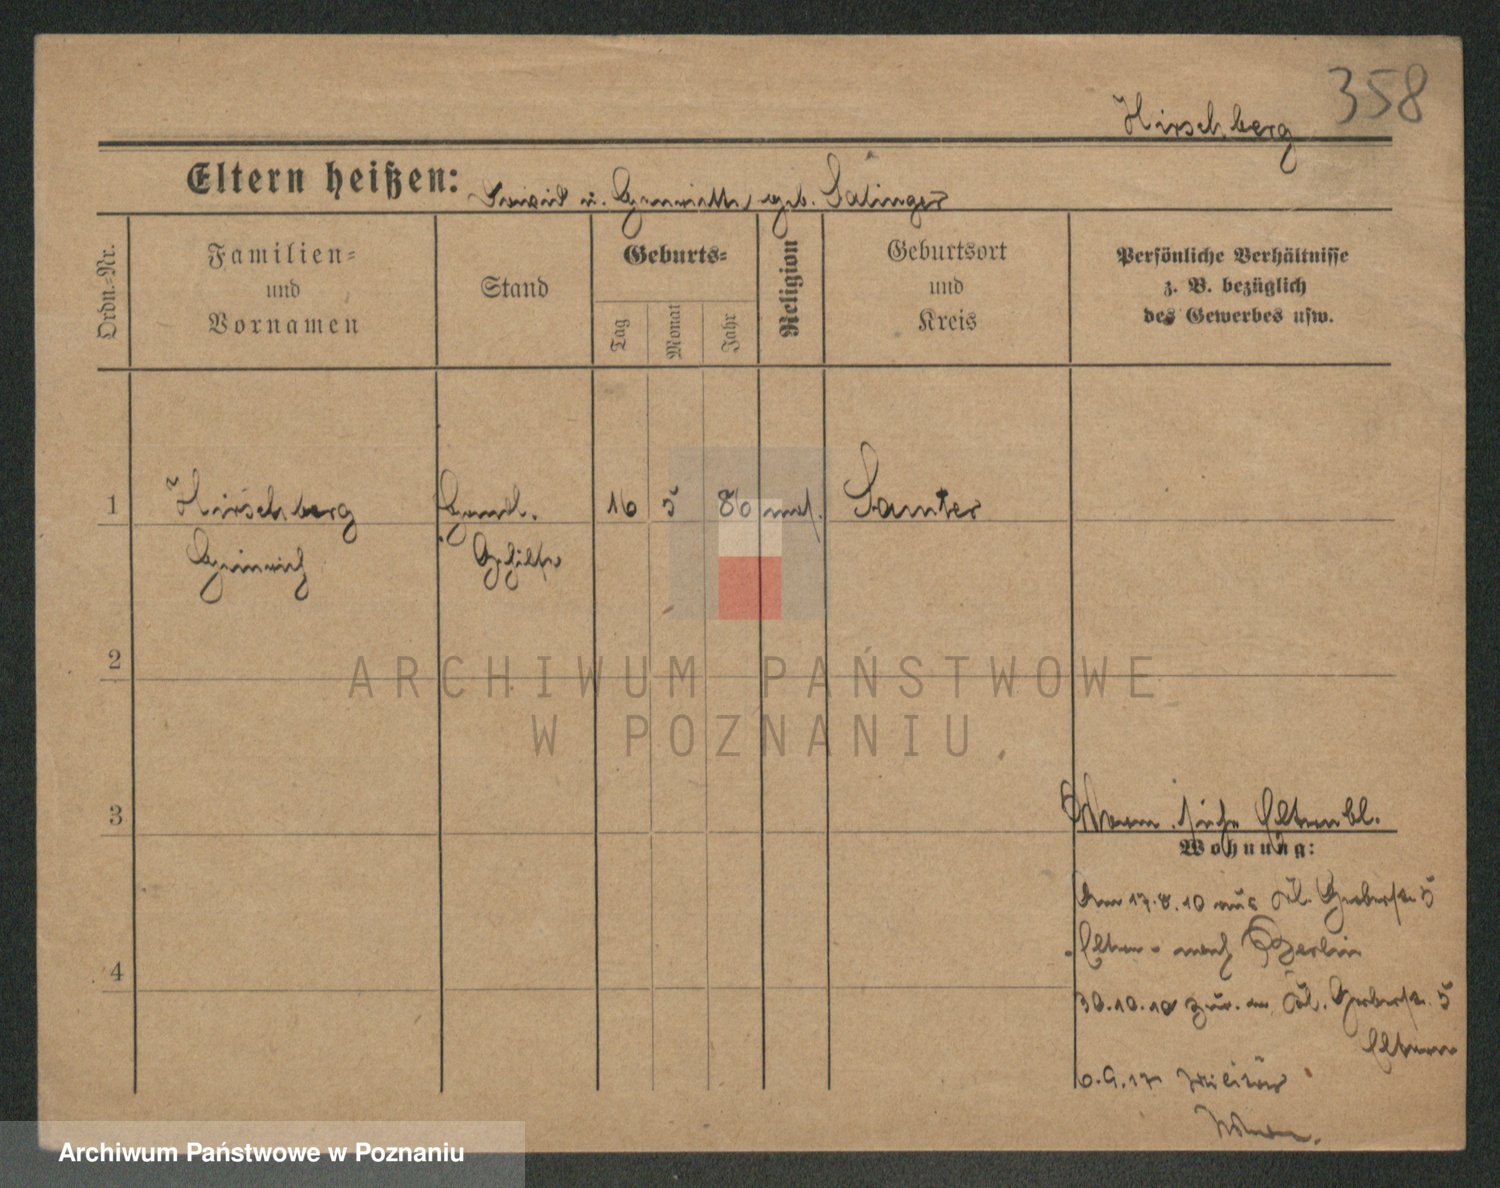 358
Hirschberg
Eltern heißen: u. Henriette geb. Salinger
Ordn.-Nr.
Familien-
und
Vornamen
Stand
Geburts-
Tag
Monat
Jahr
Religion
Geburtsort
und
Kreis
Persönliche Verhältnisse
z. B. bezüglich
des Gewerbes usw.
1 Hirschberg Handl. 16 5 86 mos. Samter
Heinrich Gehilfe
2
ARCHIWUM PAŃSTWOWE
W POZNANIU
3
siehe Elternbl.
Wohnung:
17.8.10 aus Gerberstr. 5
Eltern nach Berlin
30.10.10 zur. Gerberstr. 5
Eltern
4
6.9.17 Militär
Archiwum Państwowe w Poznaniu